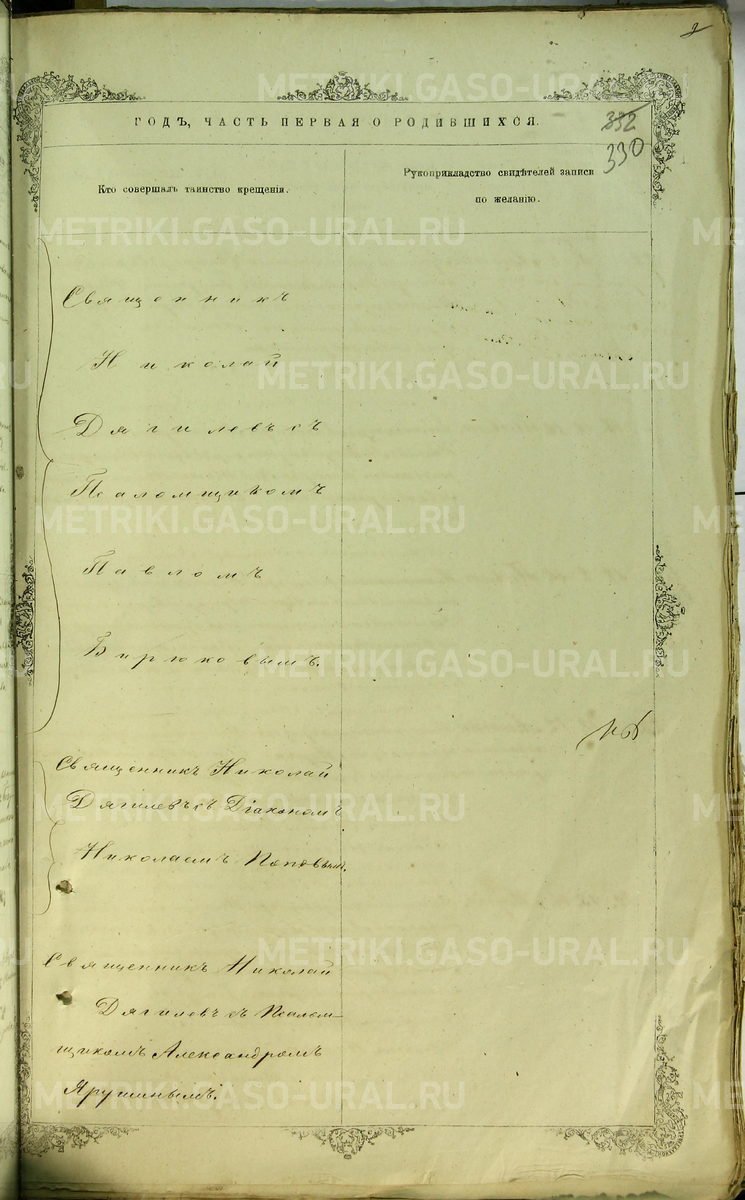 2
ГОДЪ, ЧАСТЬ ПЕРВАЯ О РОДИВШИХСЯ.
332
330
Кто совершалъ таинство крещенія.
Рукоприкладство свидѣтелей записи
по желанію.
Священникъ
Николай
Дягилевъ съ
Псаломщикомъ
Павломъ
Бирюковымъ.
Священникъ Николай
Дягилевъ съ Діакономъ
Николаемъ Поповымъ.
Священникъ Николай
Дягилевъ съ Псалом-
щикомъ Александромъ
Ярушинымъ.
METRIKI.GASO-URAL.RU